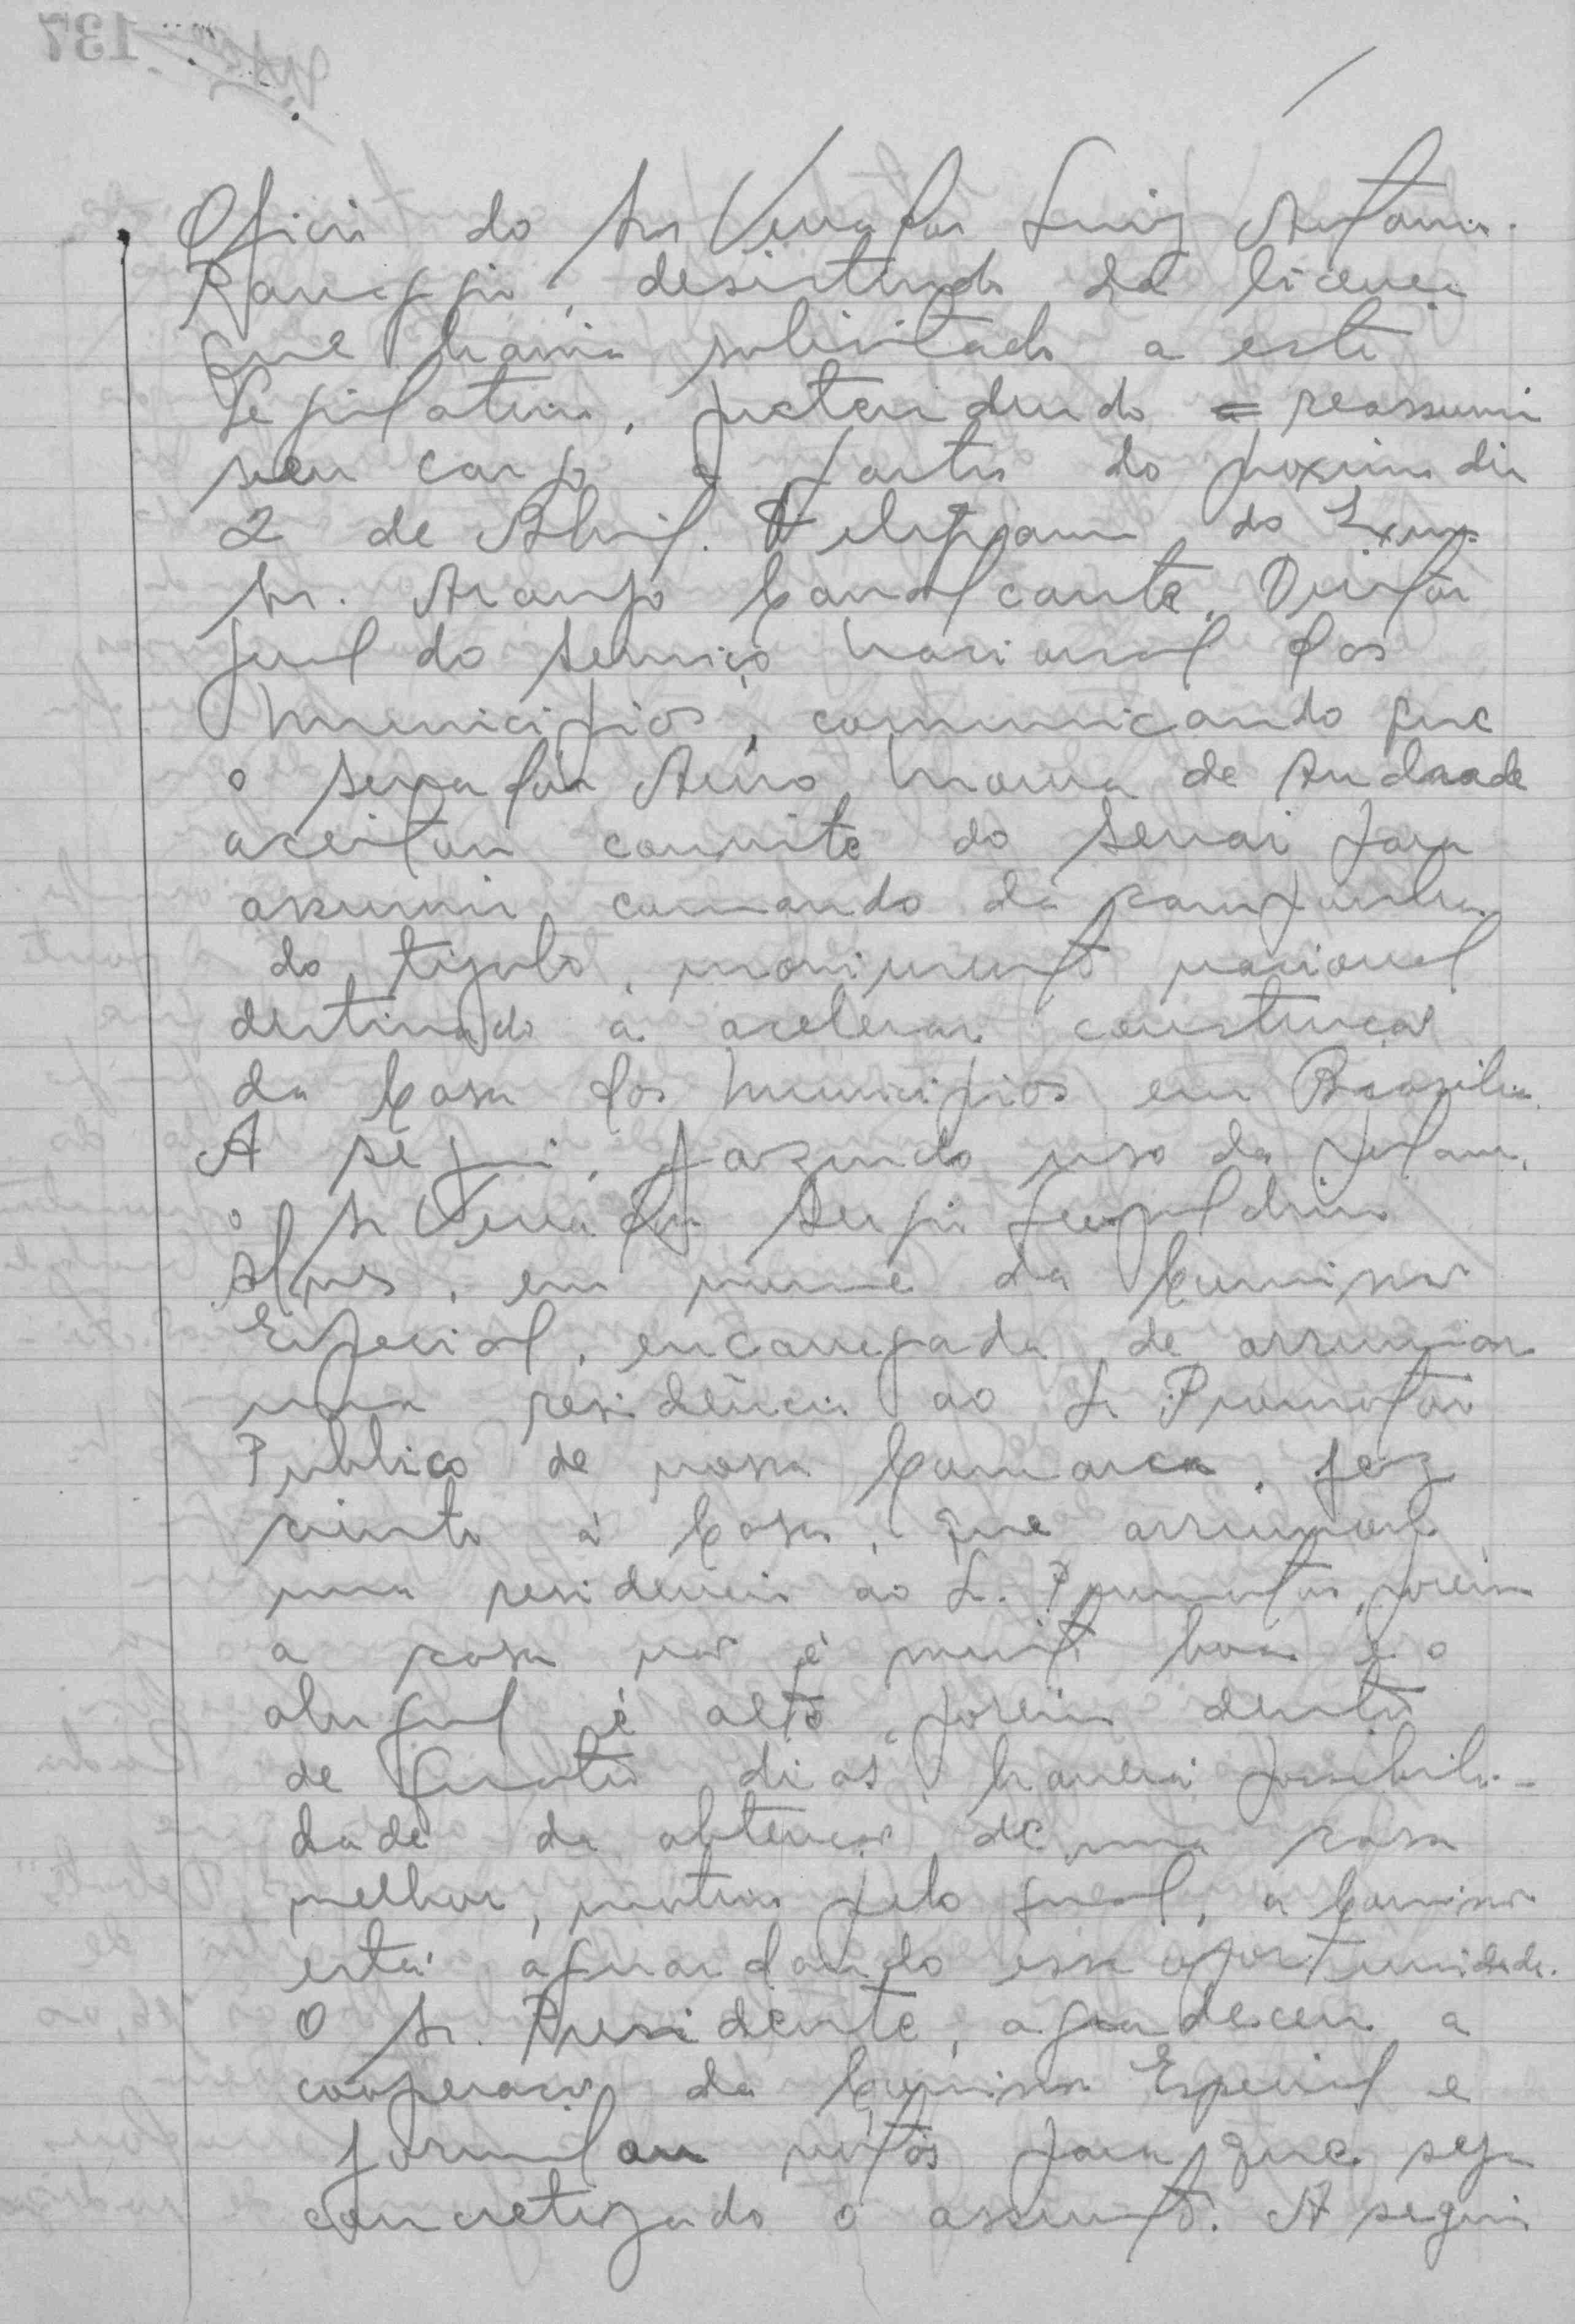 Oficio do Sr Vereador Luiz Antonio
desistindo da licença
que havia solicitado a este
Legislativo, pretendendo reassumir
seu cargo a partir do proximo dia
2 de Abril. Telegrama do Exmo
Sr. Araujo Cavalcante, Diretor
geral do Serviço Nacional dos
Municipios, comunicando que
o senador Auro Moura de Andrade
aceitou convite do Senai para
assumir comando da campanha
do tijolo, movimento nacional
destinado a acelerar construção
da Casa dos Municipios em Brasilia.
A seguir, fazendo uso da palavra,
o Sr Vereador Sergio Leopoldino
Alves, em nome da Comissão
Especial, encarregada de arrumar
uma residência ao Sr Promotor
Publico de nossa Comarca, fez
ciente à Casa, que arrumou
uma residencia ao Sr. Promotor, porém
a casa não é muito boa e o
aluguel é alto, porém dentro
de quatro dias, haverá possibili-
dade da obtenção de uma casa
melhor, motivo pelo qual, a Comissão
está aguardando essa oportunidade.
O Sr. Presidente, agradeceu a
cooperação da Comissão Especial e
formulou votos para que seja
concretizado o assunto. A seguir